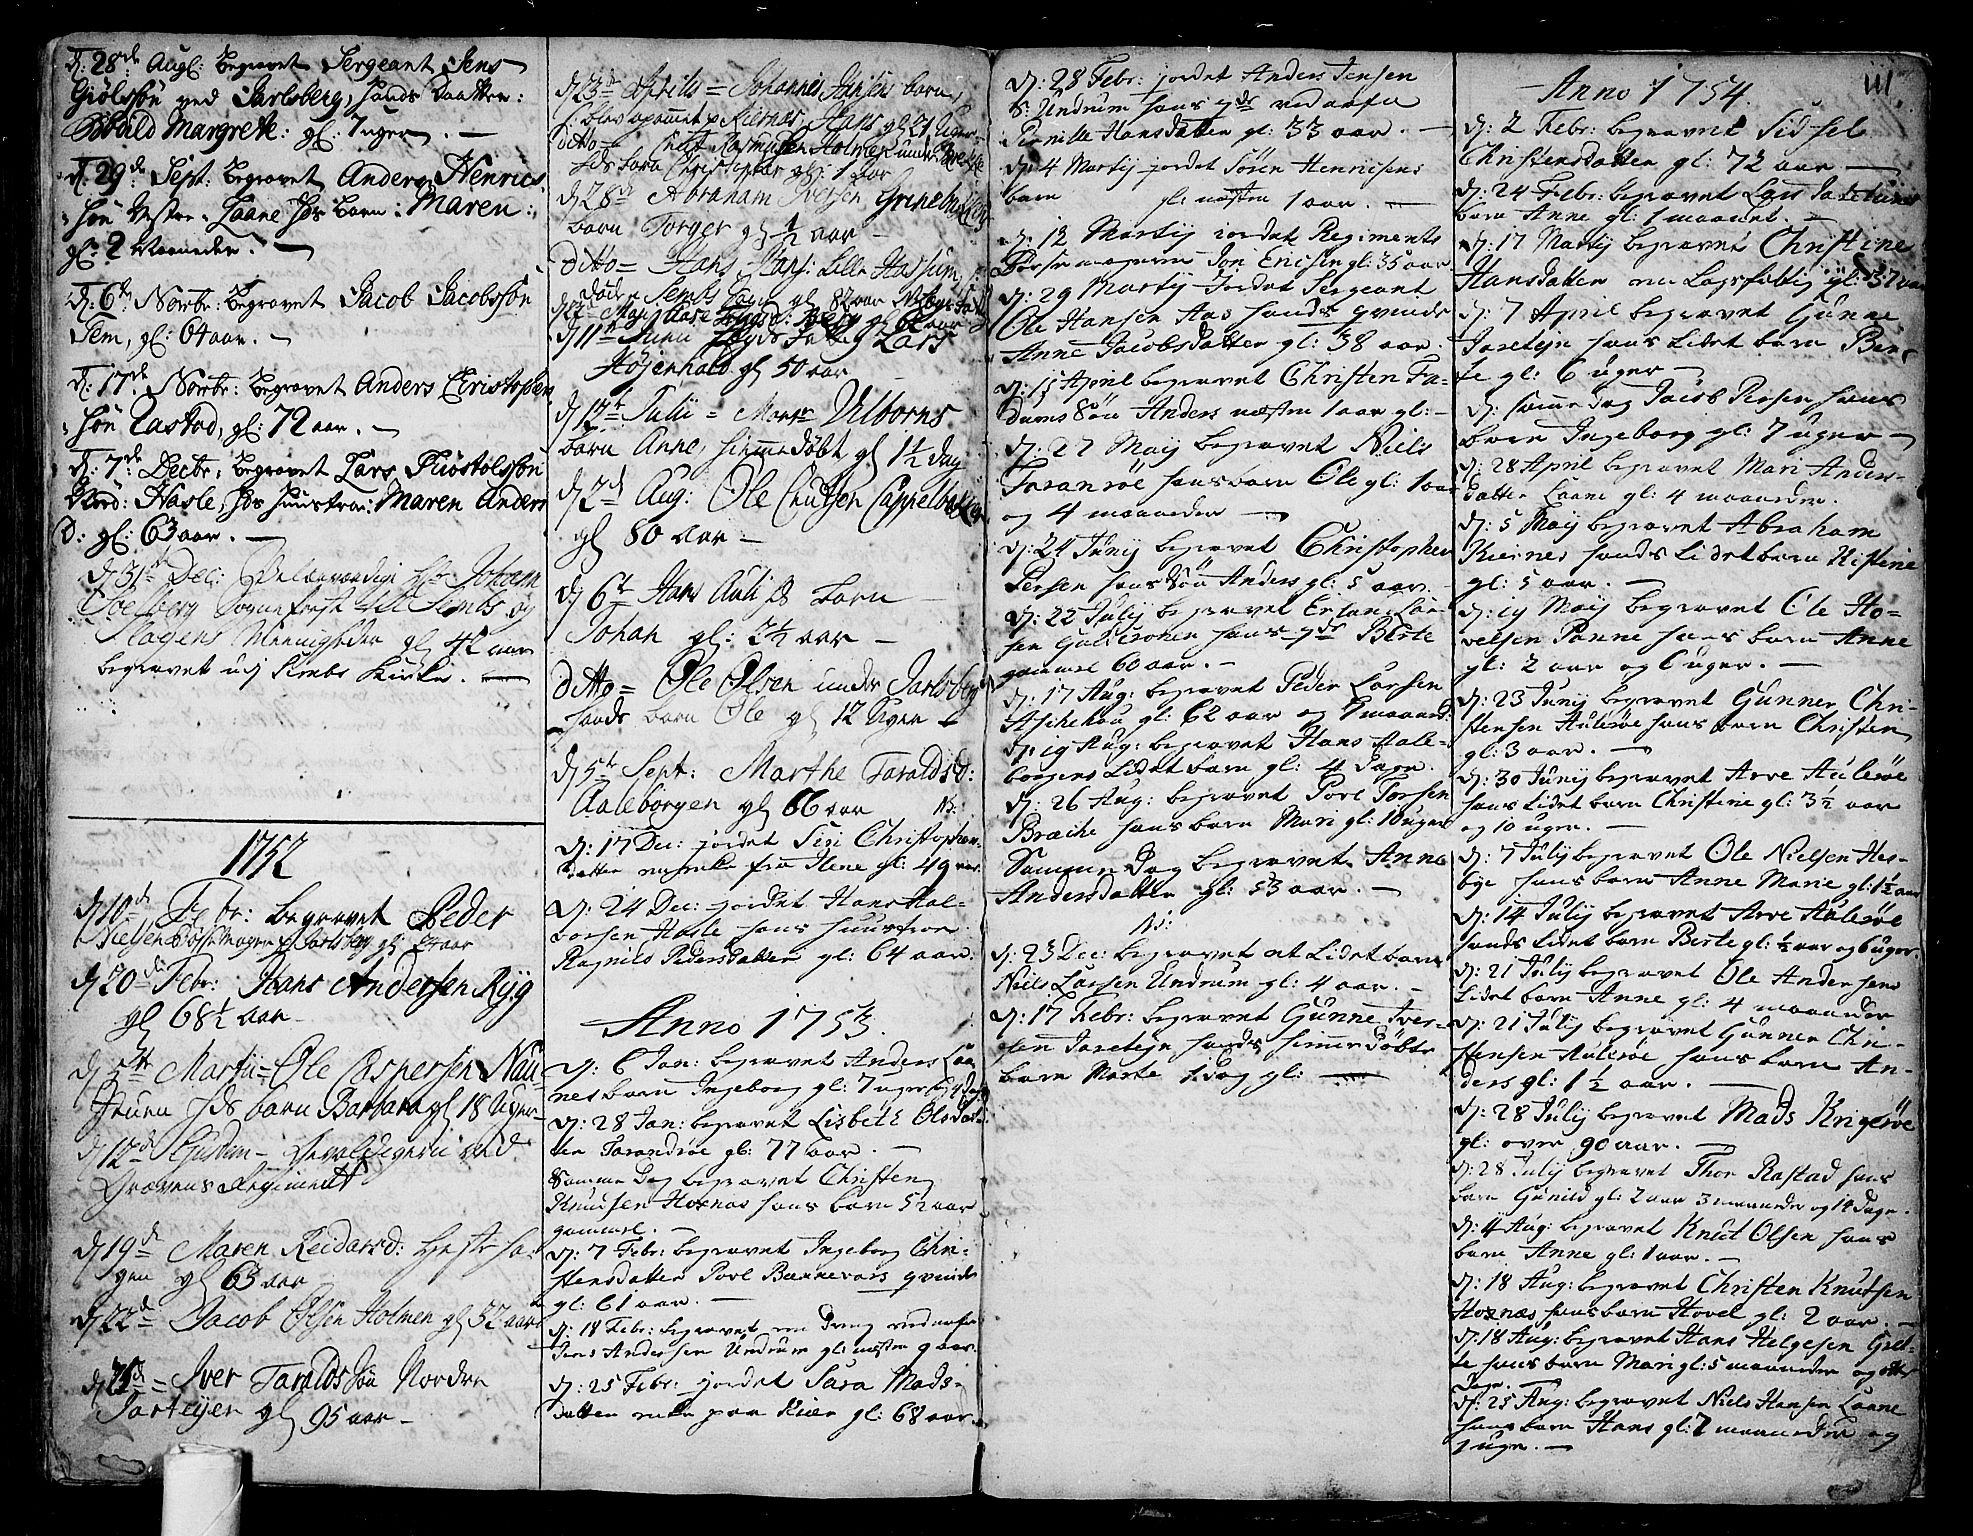 D: 28de Aug: begravet Sergeant Jens
Giølssøn ved Jarlsberg, hands Daatter:
Bodild Margrete: gl: 7 uger. —
D: 29de Sept: begravet Anders Henrics
søn Vestre-Laane hds barn: Maren:
gl: 2 Maaneder. —
D: 6te Novbr: begravet Jacob Jacobssøn
Sem, gl: 64 aar. —
D: 17de Novbr: begravet Anders Christophen
søn Rastad, gl: 72 aar. —
D: 7de Decbr: begravet Lars Tiostolssøn
Nord: Hasle, hds hustroe: Maren Anders
D: gl: 63 aar. —
d 31te Dec: Velærværdige Hr Johan
Soelberg Sogneprest til Sembs og
Slagens Menigheder gl 42 aar
begravet udj Sembs Kirke. —
1752
d 10de Febr: begravet Peder
Nielsen Bøssemager Jarlsberg gl: aar
d 20de Febr: Hans Andersen Ryg
gl 68½ aar
d 5te Martii = Ole Caspersen Nau-
hds barn Barbara gl 18 Uger
d 12de ved
Grevens Regiment
d 19de Maren Reidarsd:
gl 63 aar
d 22de Jacob Olsen Holmen gl 32 aar
d Iver Taraldssøn Nordre
Jarteyen gl 95 aar —
d 23de Aprilis = Johannes Hansens barn,
Kiernes, Hans gl 21 Uger
ditto = Rasmussen Holmen under
hds barn Christopher gl: 1 aar
d 28de Abraham Iversen
barn Torger gl ½ aar
ditto = Hans Lille
gl 82 aar
gl 62 aar
d 11te Junii Lars
Høijenhald gl 50 aar
d 12te Julii = Vilborns
barn Anne, hiemmedøbt gl 1½ dag
d 2de Aug: Ole Cnutsen
gl 80 Aar —
d 6te Hans barn
Johan gl: 2½ aar —
ditto = Ole Olsen under Jarlsberg
hands barn Ole gl 12 Uger
d 5te Sept: Marthe Taraldsd:
Aaleborgen gl 66 aar
D: 17 Dec: jordet Siri Christophers-
datter enke fra Ilene gl: 49 aar.
D: 24 Dec: jordet Hans Hal-
vorsen Hasle hans huustroe
Ragnild Pedersdatter gl: 64 aar.
Anno 1753.
D: 6 Jan: begravet Anders Laa-
nes barn Ingeborg gl: 7 uger og
D: 28 Jan: begravet Lisbeth Olsdat-
ter Tarandrøe gl: 77 aar. —
Samme Dag begravet Christen
Knudsen Hoxnas hans barn 5½ aar
gammel. —
D: 7 Febr: begravet Ingeborg Chri-
stensdatter Povl qvinde
gl: 61 aar. —
D: 18 Febr: begravet en Dreng
Jens Andersen Undrum gl: næsten 9 aar.
D: 25 Febr: jordet Sara Mads-
datter enke paa Kiær gl: 68 aar.
D: 28 Febr: jordet Anders Jensen
S: Undrum hans
Pernille Hansdatter gl: 33 aar. —
D: 4 Martij jordet Søren Henricsens
barn gl: næsten 1 aar. —
D: 12 Martij jordet Regiments
Jon Ericsen gl: 35 aar
D: 29 Martij jordet Sergeant
Ole Hansen Aas hands qvinde
Anne Jacobsdatter gl: 38 aar.
D: 15 April begravet Christen Fa-
dums Søn Anders næsten 1 aar gl: —
D: 27 Maij begravet Niels
Taranrøe hans barn Ole gl: 1 aar
og 4 maaneder —
D: 24 Junij begravet Christopher
Persen hans Søn Anders gl: 5 aar. —
D: 22 Julij begravet Erland Lar-
sen Guldkronen hans Berte
gammel 60 aar. —
D: 17 Aug: begravet Peder Larsen
Aschehou gl: 62 aar og maaned:
D: 19 Aug: begravet Hans Aale-
borgens lidet barn gl: 4 dage.
D: 26 Aug: begravet Povl Torsen
Bræche hans barn Mari gl: 10 uger
Samme Dag begravet Anne
Andersdatter gl: 53 aar. —
D: 23 Dec: begravet et lidet barn
Niels Larsen Undrum gl: 4 aar. —
D: 17 Febr: begravet Gunne Iver-
sen Jareteijn hands hiemme Døbte
barn Marte 1 dag gl: —
111
Anno 1754.
D: 2 Febr: begravet Sidsel
Christensdatter gl: 72 aar —
D: 24 Febr: begravet Lars
barn Anne gl: 1 maanet. —
D: 17 Martij begravet Christine
Hansdatter en Løsfattig gl: 37 aar
D: 7 April begravet Gunne
Jareteijn hans lidet barn Ber-
te gl: 6 uger —
D: samme dag Jacob Persen hans
barn Ingeborg gl: 7 uger —
D: 28 April begravet Mari Anders-
datter Laane gl: 4 maaneder.
D: 5 Maij begravet Abraham
Kiernes hands lidet barn Kistine
gl: 5 aar. —
D: 19 Maij begravet Ole Ho-
velsen Panne hans barn Anne
gl: 2 aar og 6 uger. —
D: 23 Junij begravet Gunner Chri-
stensen Aulerøe hans barn Christen
gl: 3 aar. —
D: 30 Junij begravet Arve Aulerøe
hans lidet barn Christine gl: 3½ aar
og 10 uger. —
D: 7 Julij begravet Ole Nielsen Hes-
bye hans barn Anne Marie gl: 1½ aar
D: 14 Julij begravet Arve Aulerøe
hands lidet barn Berte gl: ½ aar og 6 uger.
D: 21 Julij begravet Ole Andersens
lidet barn Anne gl: 4 maaneder
D: 21 Julij begravet Gunner Chri-
stensen Aulerøe hans barn An-
ders gl: 1½ aar. —
D: 28 Julij begravet Mads Krigerøe
gl: over 90 aar. —
D: 28 Julij begravet Thor Rastad hans
barn Gunild gl: 2 aar 3 maaneder og 14 dage.
D: 4 Aug: begravet Knud Olsen hans
barn Anne gl: 1 aar. —
D: 18 Aug: begravet Christen Knutsen
Hoxnæs hans barn Hovel gl: 2 aar. —
D: 18 Aug: begravet Hans Helgesen
hans barn Mari gl: 5 maaneder og otte
Dage. —
D: 25 Aug: begravet Niels Hansen Laane
hans barn Hans gl: 7 maaneder og
1 uge. —